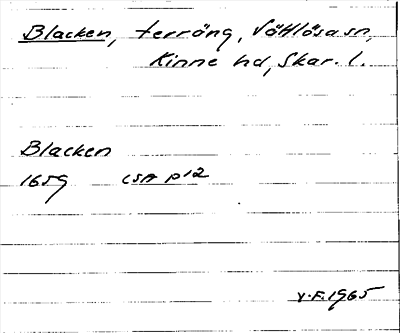 Blacken, terräng, Vättlösa sn,
Kinne hd, Skar. l.
Blacken
1659 LSA P12
V.F. 1965